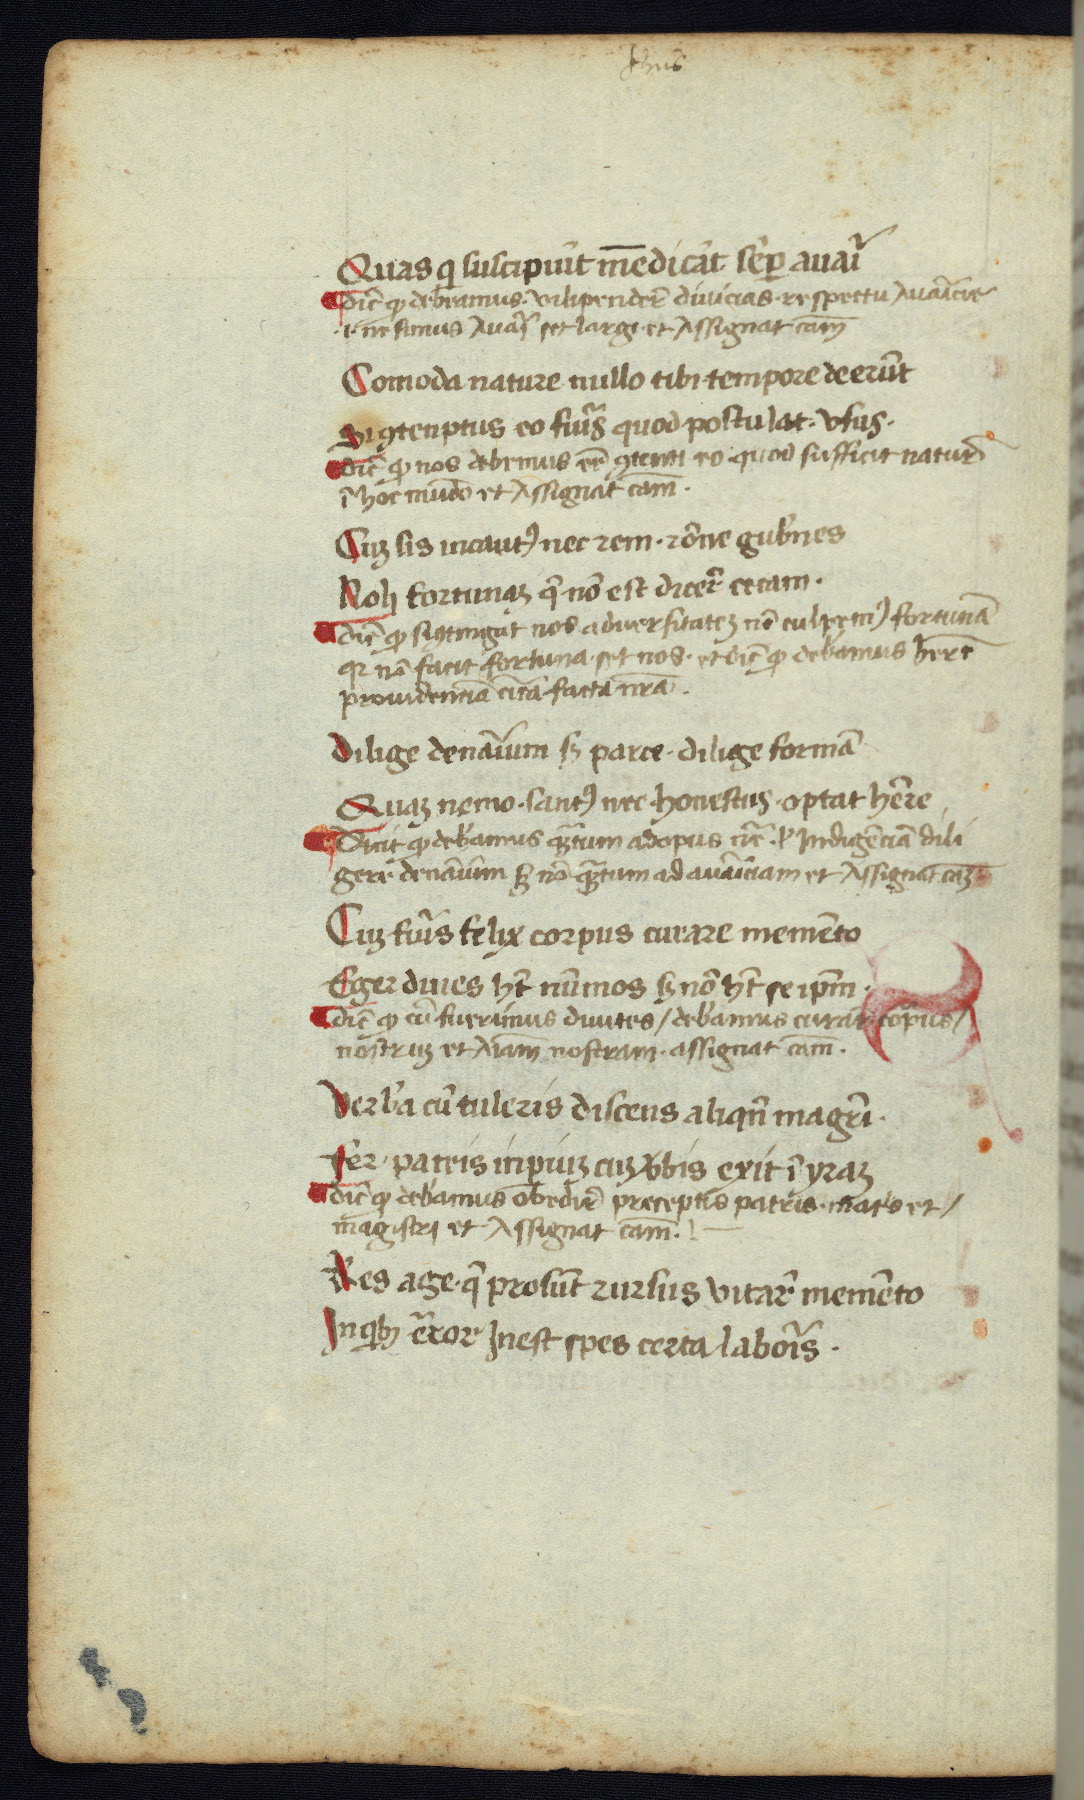 Jhus
Quas q̄ suscipiūt mēdicāt sēp auari
dic̄ ꝙ debeamus vilipendere divicias respectu Avaricie
.i. ne simus Avari set largi et Assignat cām
Comoda nature nullo tibi tempore deerūt
Si ꝯtenptus eo fuīs quod postulat vsus.
dic̄ ꝙ nos debemus ēe ꝯtenti eo quod sufficit nature
ī hoc mūdo et Assignat cam.
Cuꝫ sis incautꝰ nec rem rōne gubnes
Noli fortunaꝫ q̄ nō est dicere cecam.
dic̄ ꝙ si ꝯtingat nos adversitateꝫ nō culpemꝰ fortunā
qr nō facit fortuna set nos. et dic̄ ꝙ debeamus here
providenciā circa facta nrā.
Dilige denarium sꝫ parce dilige formā
Quaꝫ nemo santꝰ nec honestus optat hēre
Dicit ꝙ debeamus q̄ntum ad opus Indigēciā dili
gere denarium sꝫ nō q̄ntum ad avariciam et Assignat caꝫ
Cuꝫ fuīs felix corpus curare memēto
Eger dives hꝫt nūmos sꝫ nō hꝫt se ipm.
dic̄ ꝙ cū fuerimus divites / debeamus curare corpus /
nostruꝫ et Aiam nostram. assignat cam.
Verba cū tuleris discens aliqn̄ magrī.
Fer patris inpiuꝫ cuꝫ vbis exit ī yraꝫ
dic̄ ꝙ debeamus obedire preceptis patris matris et /
magistri et Assignat cam.
Res age q̄ prosūt rursus vitare memēto
In qbꝫ error Inest spes certa laboris.